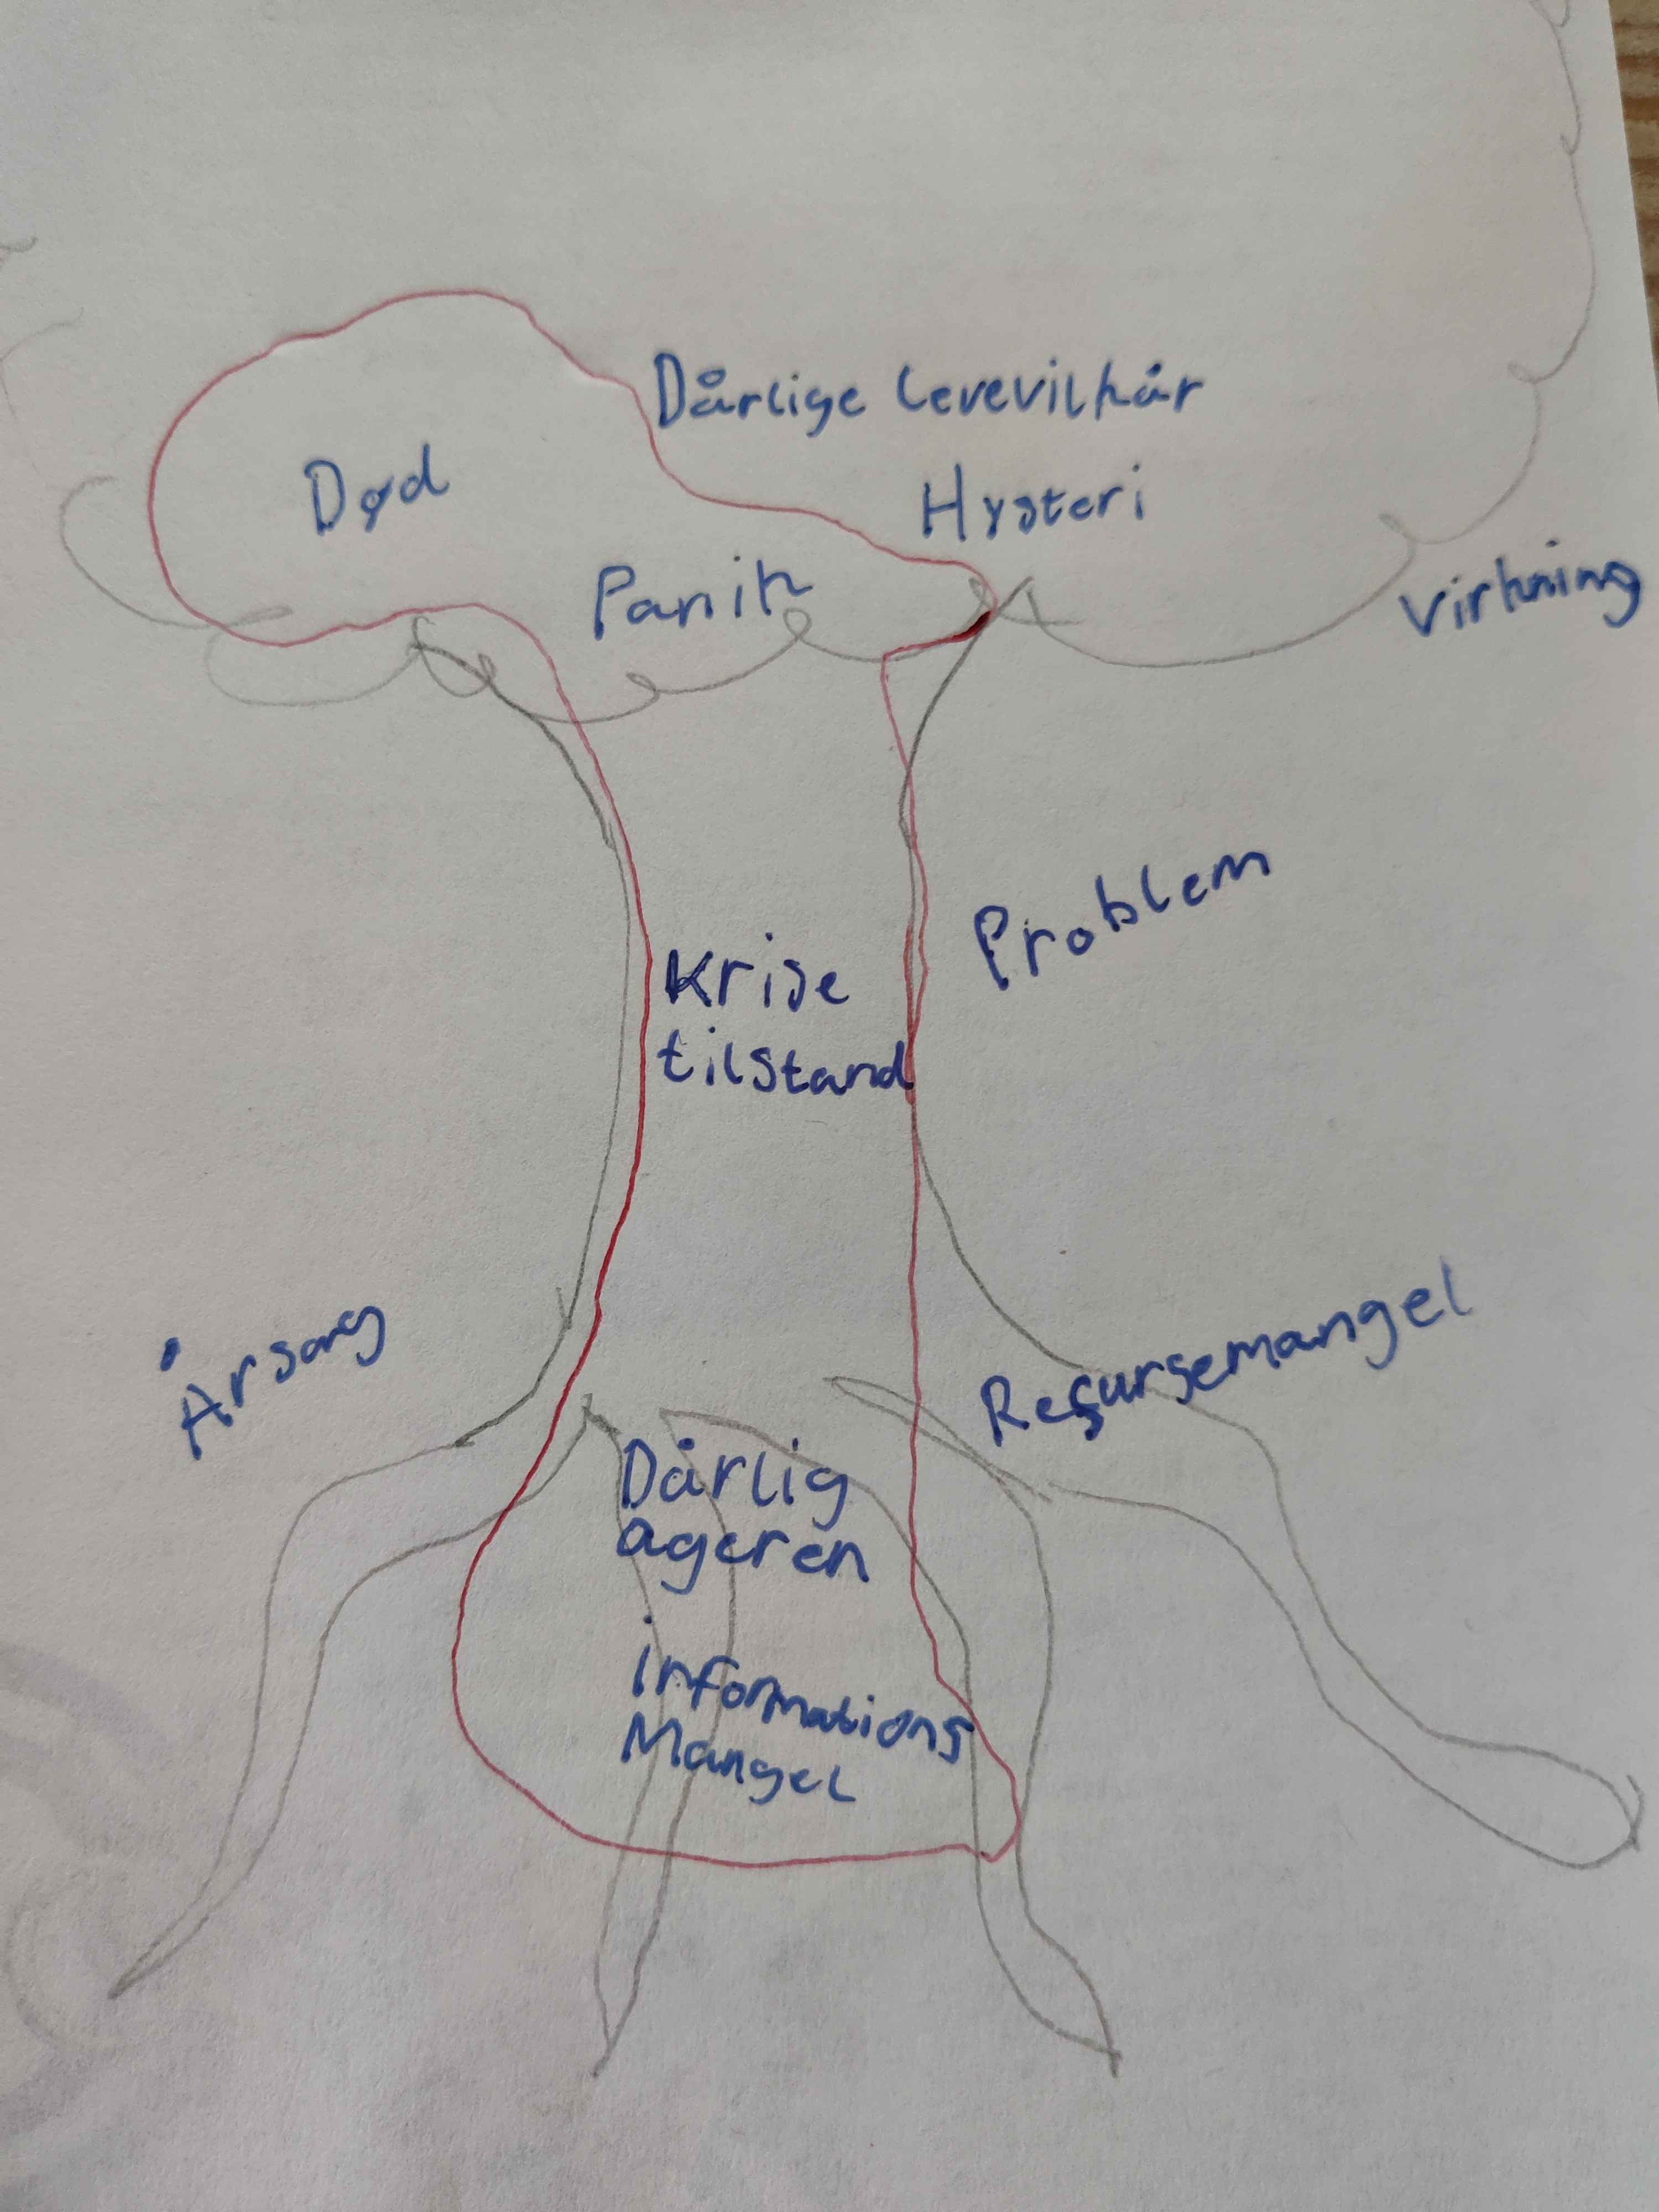 Dårlige levevilkår
Død
Hysteri
Panik
virkning
Problem
Krise
tilstand
Årsag
Resursemangel
Dårlig
ageren
informations
Mangel